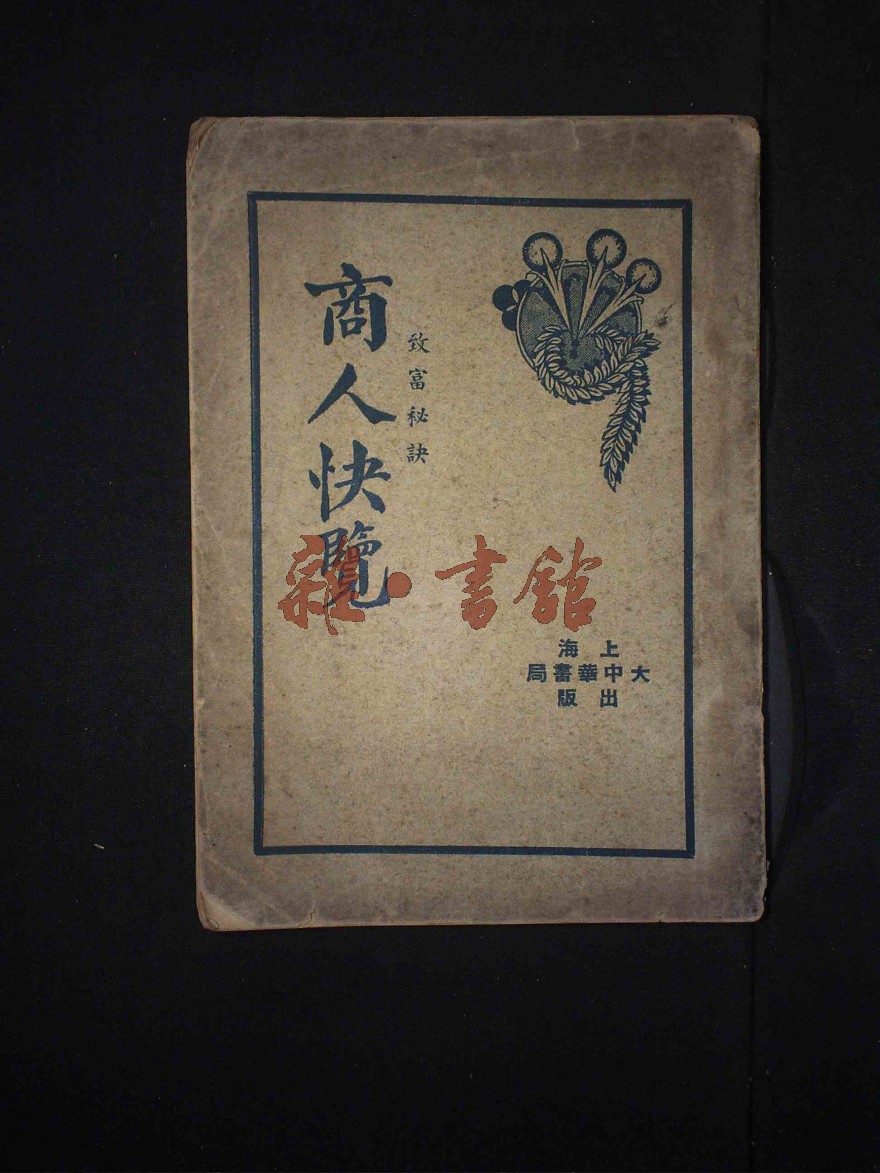 致富秘訣
商人快覽
上海
大中華書局
出版
雜·書館